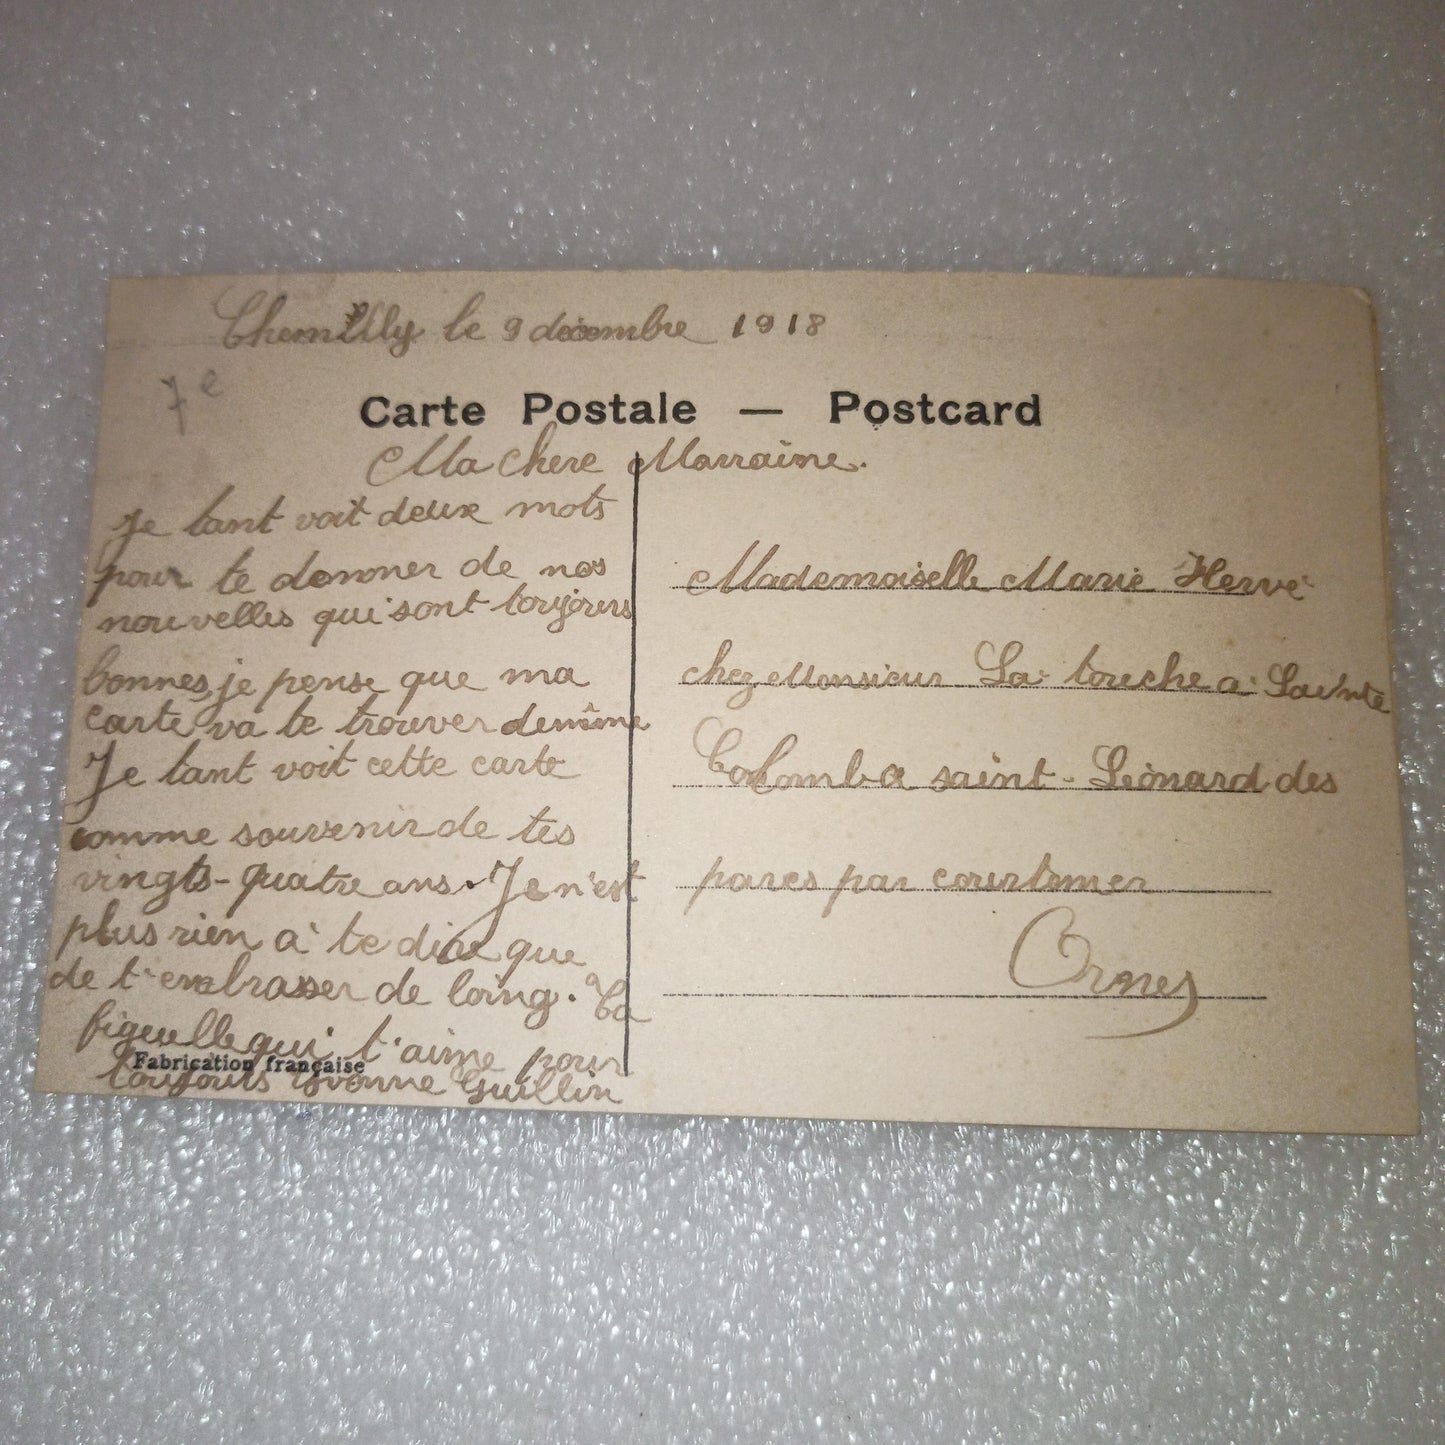 Chemilly le 9 décembre 1918
7e
Carte Postale — Postcard
Ma chere Marraine.
Je tant voit deux mots
pour te donner de nos
nouvelles qui sont toujours
bonnes, je pense que ma
carte va te trouver demême
Je tant voit cette carte
comme souvenir de tes
vingts-quatre ans. Je n'est
plus rien à te dire que
de t'embrasser de loing. Ta
figeulle qui t'aime pour
toujours Yvonne Guillin
Fabrication française
Mademoiselle Marie Hervé
chez Monsieur La touche a Sainte
Colomba saint-Léonard des
parcs par courtomer
Ornes